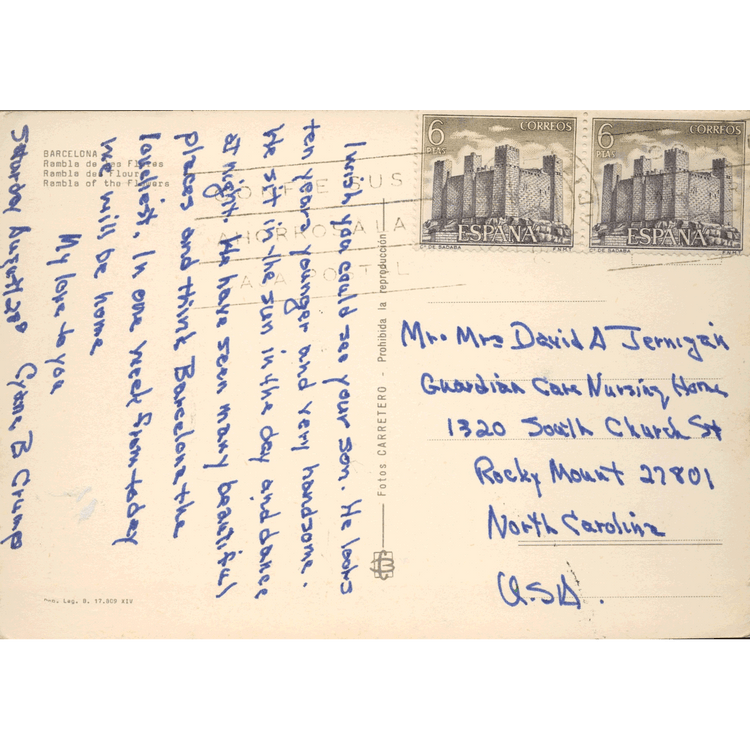 BARCELONA
Rambla de las Flores
Rambla des Fleurs
Rambla of the Flowers
I wish you could see your son. He looks
ten years younger and very handsome.
We sit in the sun in the day and dance
at night. We have seen many beautiful
places and think Barcelona the
loveliest. In one week from today
we will be home.
My love to you
Saturday August 29º Cyane B Crump
Lag. B. 17.909 XIV
Fotos CARRETERO - Prohibida la reproducción
6
PTAS
CORREOS
ESPAÑA
Cº DE SADABA
F.N.M.T.
6
PTAS
CORREOS
ESPAÑA
Cº DE SADABA
F.N.M.T.
CONFIE SUS
AHORROS A LA
CAJA POSTAL
Mr. Mrs David A Jernigan
Guardian Care Nursing Home
1320 South Church St
Rocky Mount 27801
North Carolina
U.S.A.